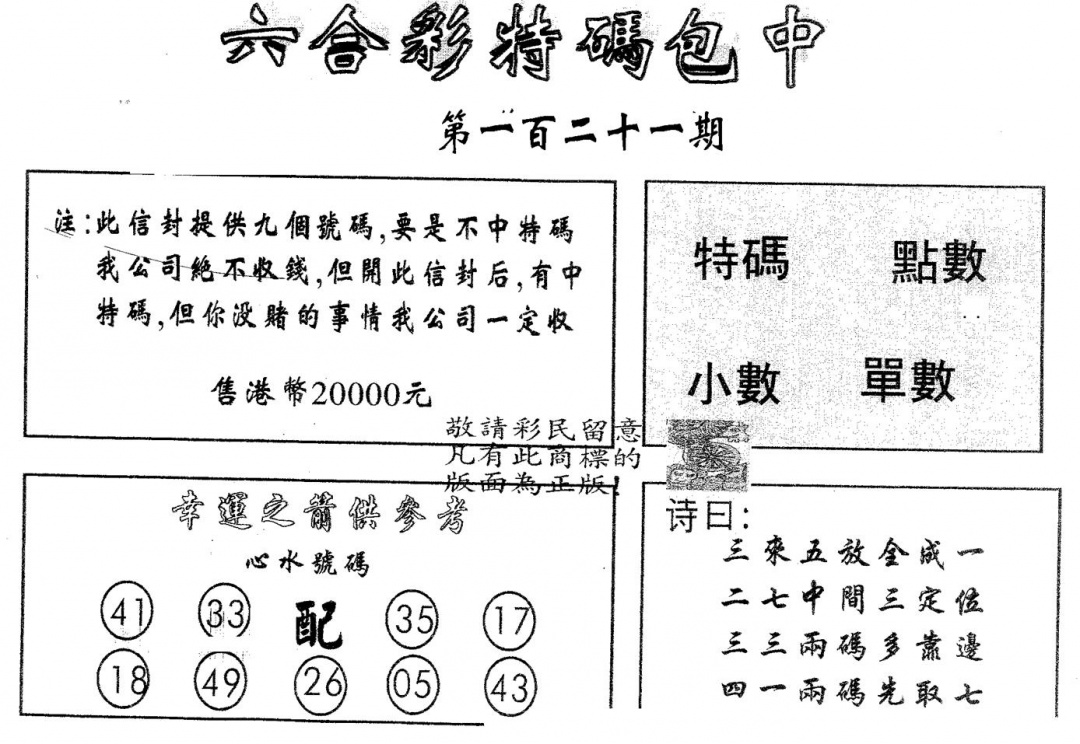 六合彩特碼包中
第一百二十一期
注:此信封提供九個號碼,要是不中特碼
我公司絕不收錢,但開此信封后,有中
特碼,但你没賭的事情我公司一定收
售港幣20000元
特碼 點數
小數 單數
敬請彩民留意
凡有此商標的
版面為正版!
幸運之箭供參考
心水號碼
41 33 配 35 17
18 49 26 05 43
诗曰:
三來五放全成一
二七中間三定位
三三兩碼多靠邊
四一兩碼先取七